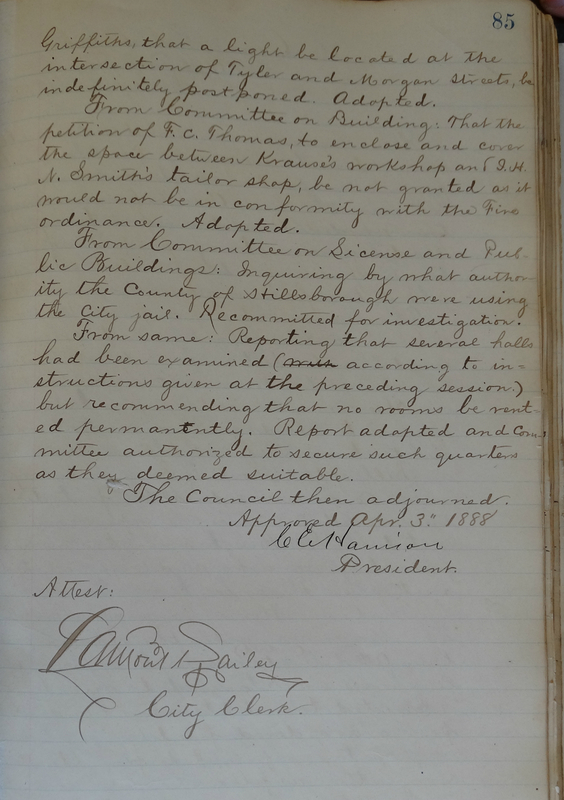 85
Griffiths, that a light be located at the
intersection of Tyler and Morgan streets, be
indefinitely postponed. Adopted.
From Committee on Building: That the
petition of F. C. Thomas, to enclose and cover
the space between Krause's workshop and I. H.
N. Smith's tailor shop, be not granted as it
would not be in conformity with the Fire
ordinance. Adopted.
From Committee on License and Pub-
lic Buildings: Inquiring by what author-
ity the County of Hillsborough were using
the City jail. Recommitted for investigation.
From same: Reporting that several halls
had been examined ( according to in=
structions given at the preceding session.)
but recommending that no rooms be rent-
ed permantently. Report adopted and Com-
mittee authorized to secure such quarters
as they deemed suitable.
The Council then adjourned.
Approved Apr. 3." 1888
C E Harrison
President.
Attest:
Lamont Bailey
City Clerk.